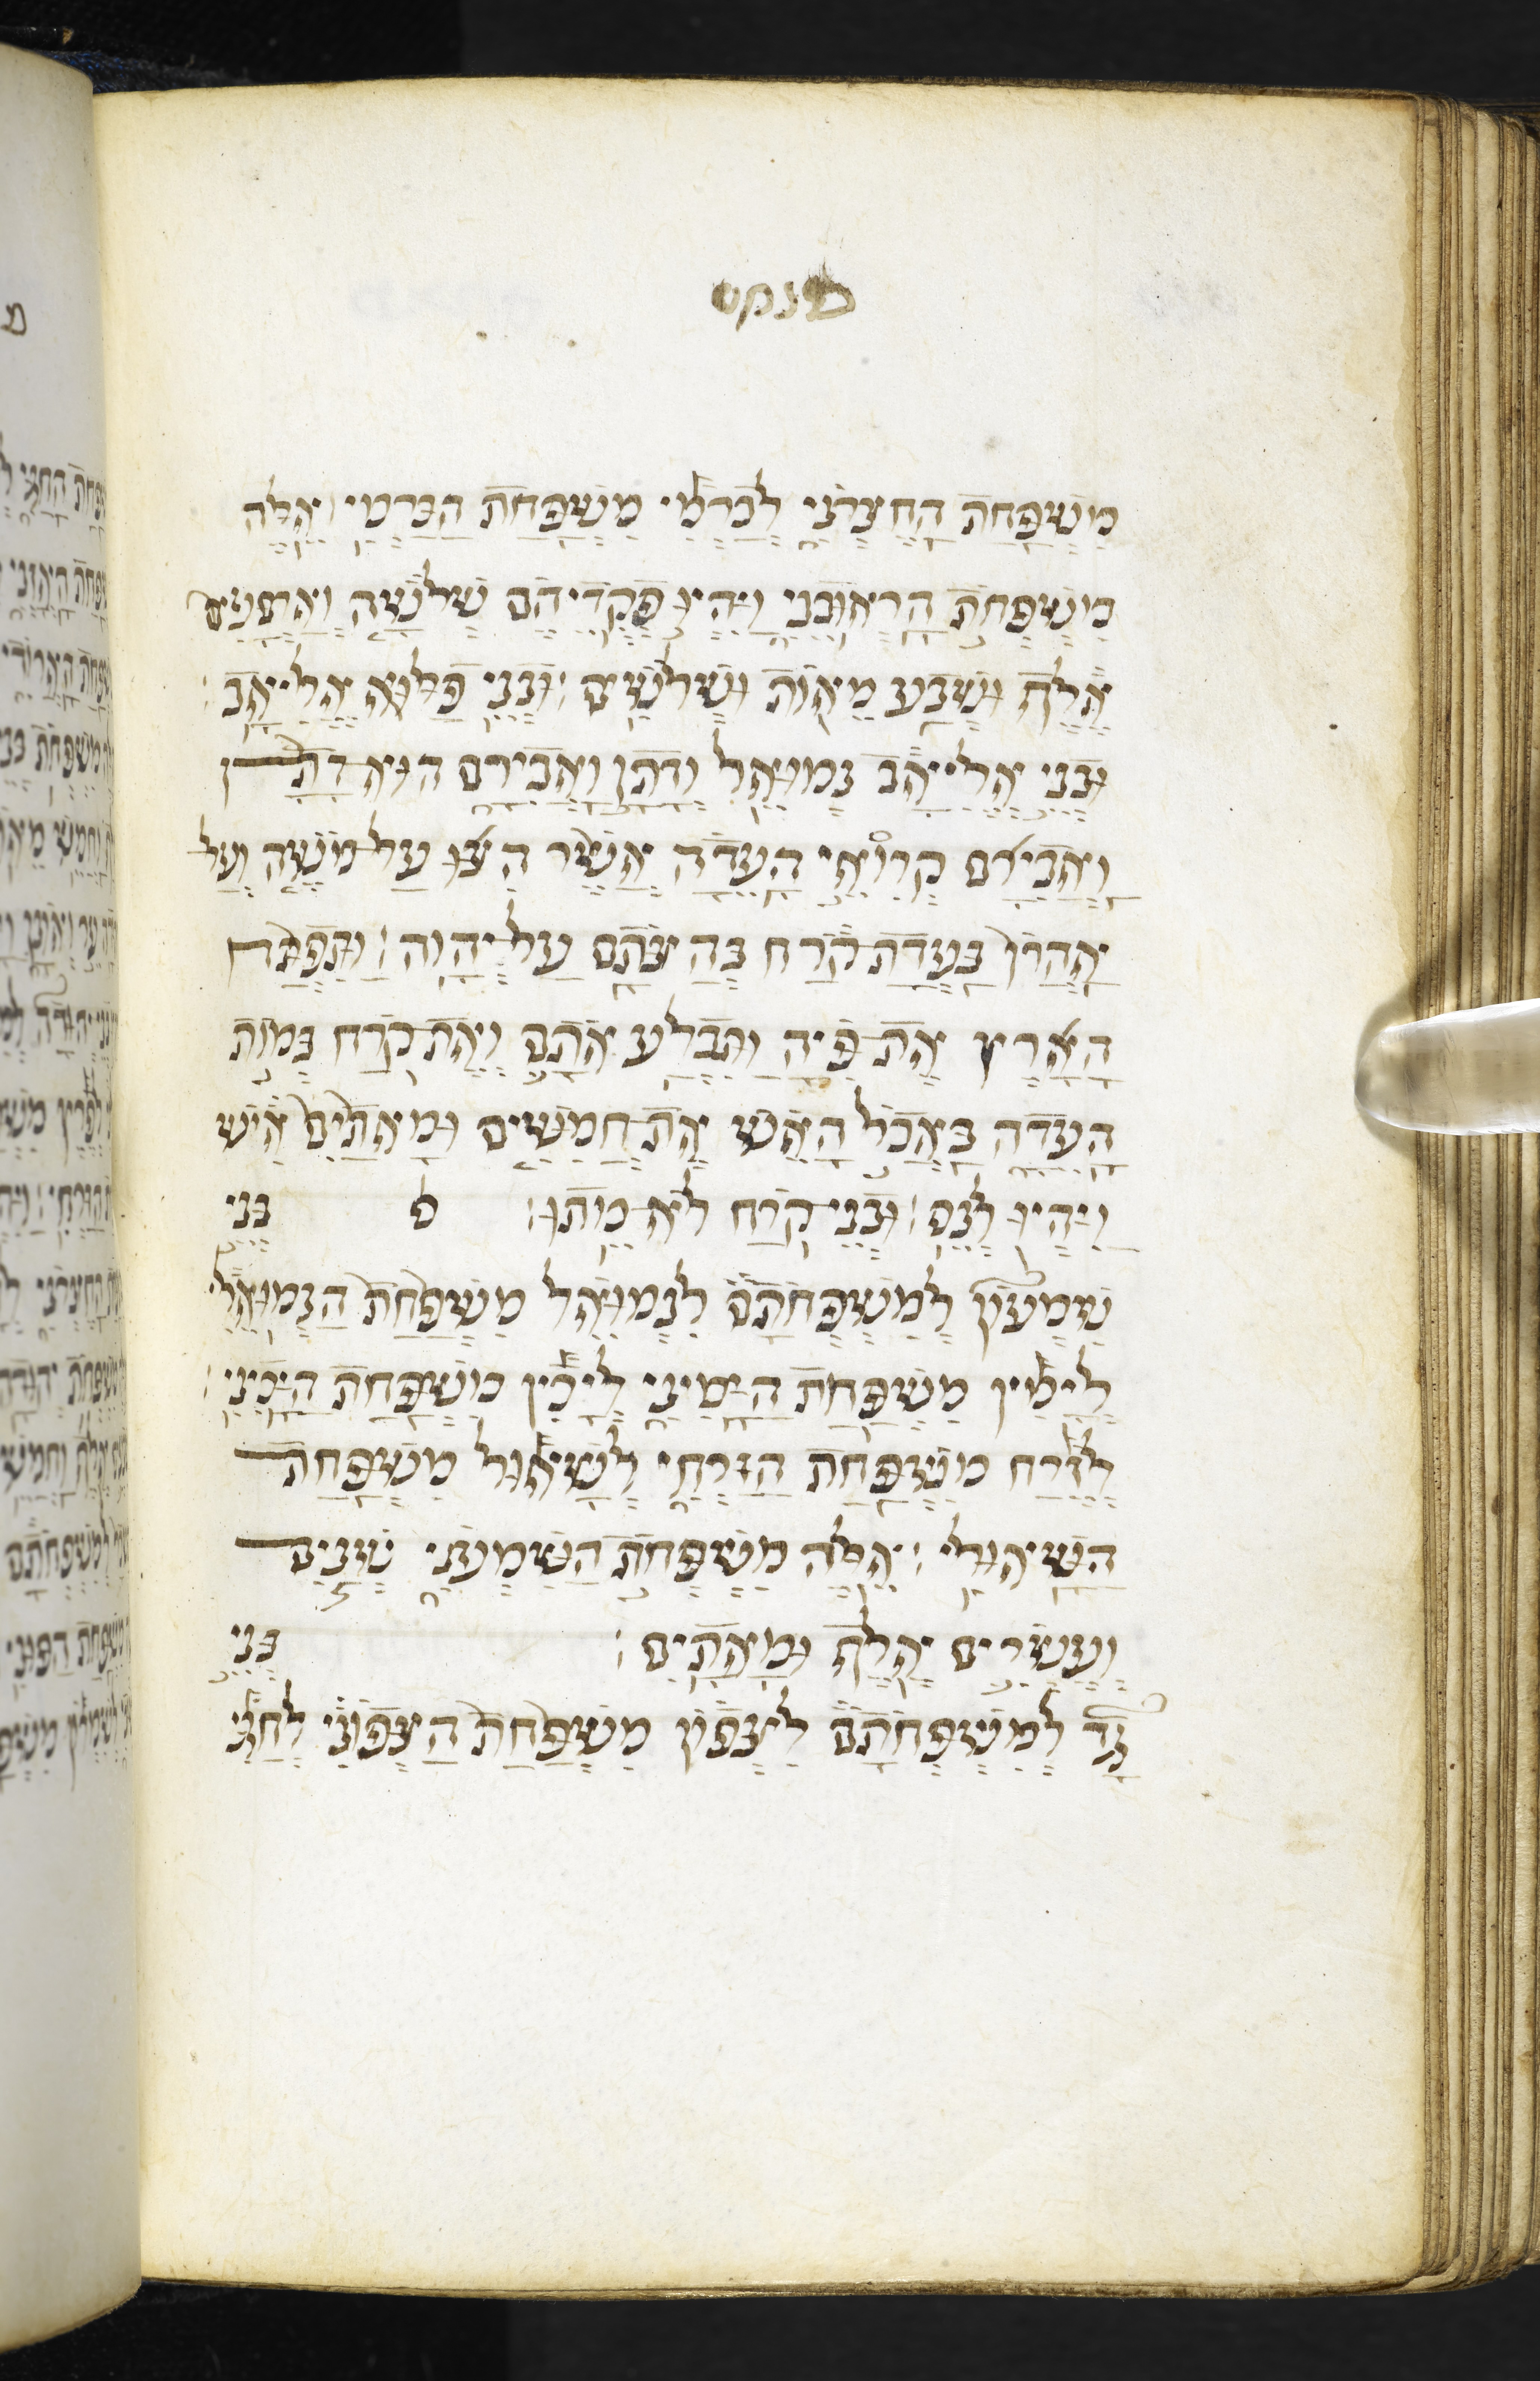 פנחס
מִשְׁפַּחַת הַחֶצְרֹנִי לְכַרְמִי מִשְׁפַּחַת הַכַּרְמִי אֵלֶּה
מִשְׁפְּחֹת הָרֽאוּבֵנִי וַיִּהְיוּ פְקֻדֵיהֶם שְׁלֹשָׁה וְאַרְבָּעִים
אֶלֶף וּשְׁבַע מֵאוֹת וּשְׁלֹשִׁים׃ וּבְנֵי פַלּוּא אֱלִיאָב׃
וּבְנֵי אֱלִיאָב נְמוּאֵל וְדָתָן וַאֲבִירָם הוּא דָתָן
וַאֲבִירָם קְרוּאֵי הָעֵדָה אֲשֶׁר הִצּוּ עַל־מֹשֶׁה וְעַל
אַהֲרֹן בַּעֲדַת־קֹרַח בְּהַצֹּתָם עַל־יְהוָה׃ וַתִּפְתַּח
הָאָרֶץ אֶת־פִּיהָ וַתִּבְלַע אֹתָם וְאֶת־קֹרַח בְּמוֹת
הָעֵדָה בַּאֲכֹל הָאֵשׁ אֵת חֲמִשִּׁים וּמָאתַיִם אִישׁ
וַיִּהְיוּ לְנֵס׃ וּבְנֵי־קֹרַח לֹא־מֵתוּ׃ ס בְּנֵי
שִׁמְעוֹן לְמִשְׁפְּחֹתָם לִנְמוּאֵל מִשְׁפַּחַת הַנְּמוּאֵלִי
לְיָמִין מִשְׁפַּחַת הַיָּמִינִי לְיָכִין מִשְׁפַּחַת הַיָּכִינִי׃
לְזֶרַח מִשְׁפַּחַת הַזַּרְחִי לְשָׁאוּל מִשְׁפַּחַת
הַשָּׁאוּלִי׃ אֵלֶּה מִשְׁפְּחֹת הַשִּׁמְעֹנִי שְׁנַיִם
וְעֶשְׂרִים אֶלֶף וּמָאתָיִם׃ בְּנֵי
גָד לְמִשְׁפְּחֹתָם לִצְפוֹן מִשְׁפַּחַת הַצְּפוֹנִי לְחַגִּי